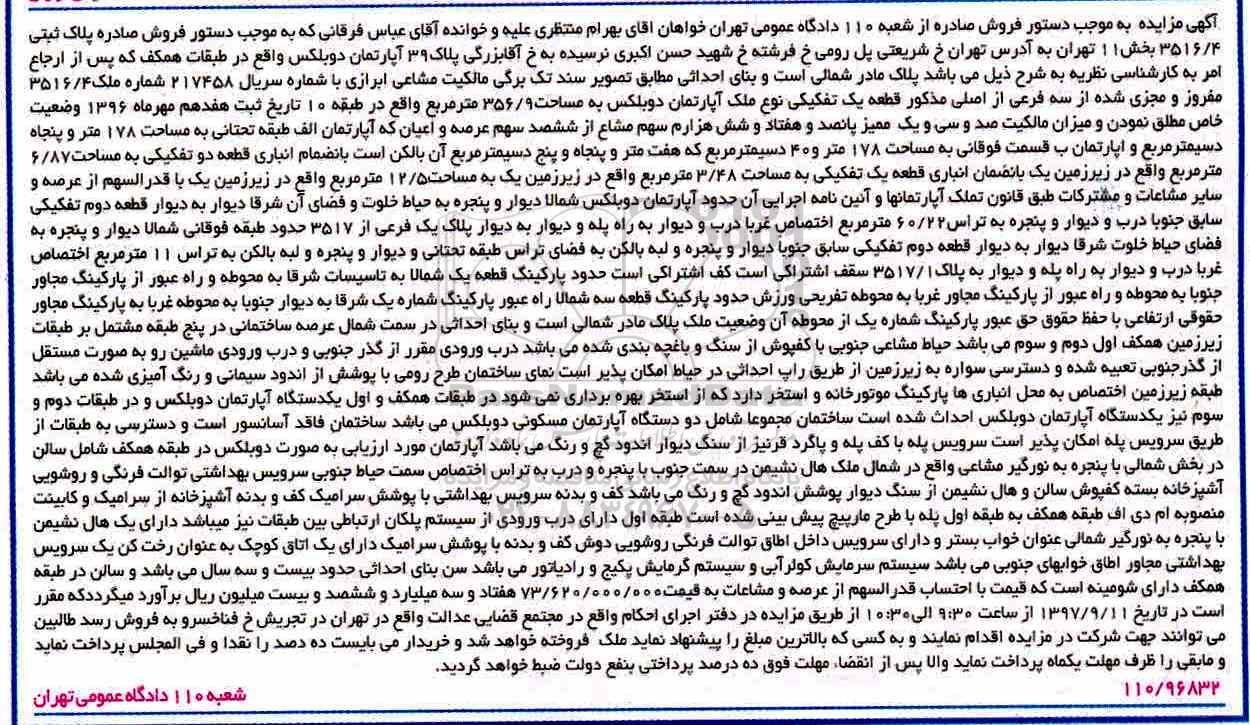 آگهی مزایده به موجب دستور فروش صادره از شعبه ۱۱۰ دادگاه عمومی تهران خواهان اقای بهرام منتظری علیه و خوانده آقای عباس فرقانی که به موجب دستور فروش صادره پلاک ثبتی
۳۵۱۶/۴ بخش۱۱ تهران به آدرس تهران خ شریعتی پل رومی خ فرشته خ شهید حسن اکبری نرسیده به خ آقابزرگی پلاک۳۹ آپارتمان دوبلکس واقع در طبقات همکف که پس از ارجاع
امر به کارشناسی نظریه به شرح ذیل می باشد پلاک مادر شمالی است و بنای احداثی مطابق تصویر سند تک برگی مالکیت مشاعی ابرازی با شماره سریال ۲۱۷۴۵۸ شماره ملک۳۵۱۶/۴
مفروز و مجزی شده از سه فرعی از اصلی مذکور قطعه یک تفکیکی نوع ملک آپارتمان دوبلکس به مساحت۳۵۶/۹ مترمربع واقع در طبقه ۱۰ تاریخ ثبت هفدهم مهرماه ۱۳۹۶ وضعیت
خاص مطلق نمودن و میزان مالکیت صد و سی و یک ممیز پانصد و هفتاد و شش هزارم سهم مشاع از ششصد سهم عرصه و اعیان که آپارتمان الف طبقه تحتانی به مساحت ۱۷۸ متر و پنجاه
دسیمترمربع و اپارتمان ب قسمت فوقانی به مساحت ۱۷۸ متر و۴۰ دسیمترمربع که هفت متر و پنجاه و پنج دسیمترمربع آن بالکن است بانضمام انباری قطعه دو تفکیکی به مساحت۶/۸۷
مترمربع واقع در زیرزمین یک بانضمان انباری قطعه یک تفکیکی به مساحت ۳/۴۸ مترمربع واقع در زیرزمین یک به مساحت۱۲/۵ مترمربع واقع در زیرزمین یک با قدرالسهم از عرصه و
سایر مشاعات و مشترکات طبق قانون تملک آپارتمانها و آئین نامه اجرایی آن حدود آپارتمان دوبلکس شمالا دیوار و پنجره به حیاط خلوت و فضای آن شرقا دیوار به دیوار قطعه دوم تفکیکی
سابق جنوبا درب و دیوار و پنجره به تراس۶۰/۲۲ مترمربع اختصاص غربا درب و دیوار به راه پله و دیوار به دیوار پلاک یک فرعی از ۳۵۱۷ حدود طبقه فوقانی شمالا دیوار و پنجره به
فضای حیاط خلوت شرقا دیوار به دیوار قطعه دوم تفکیکی سابق جنوبا دیوار و پنجره و لبه بالکن به فضای تراس طبقه تحتانی و دیوار و پنجره و لبه بالکن به تراس ۱۱ مترمربع اختصاص
غربا درب و دیوار به راه پله و دیوار به پلاک۳۵۱۷/۱ سقف اشتراکی است کف اشتراکی است حدود پارکینگ قطعه یک شمالا به تاسیسات شرقا به محوطه و راه عبور از پارکینگ مجاور
جنوبا به محوطه و راه عبور از پارکینگ مجاور غربا به محوطه تفریحی ورزش حدود پارکینگ قطعه سه شمالا راه عبور پارکینگ شماره یک شرقا به دیوار جنوبا به محوطه غربا به پارکینگ مجاور
حقوقی ارتفاعی با حفظ حقوق حق عبور پارکینگ شماره یک از محوطه آن وضعیت ملک پلاک مادر شمالی است و بنای احداثی در سمت شمال عرصه ساختمانی در پنج طبقه مشتمل بر طبقات
زیرزمین همکف اول دوم و سوم می باشد حیاط مشاعی جنوبی با کفپوش از سنگ و باغچه بندی شده می باشد درب ورودی مقرر از گذر جنوبی و درب ورودی ماشین رو به صورت مستقل
از گذرجنوبی تعبیه شده و دسترسی سواره به زیرزمین از طریق راپ احداثی در حیاط امکان پذیر است نمای ساختمان طرح رومی با پوشش از اندود سیمانی و رنگ آمیزی شده می باشد
طبقه زیرزمین اختصاص به محل انباری ها پارکینگ موتورخانه و استخر دارد که از استخر بهره برداری نمی شود در طبقات همکف و اول یکدستگاه آپارتمان دوبلکس و در طبقات دوم و
سوم نیز یکدستگاه آپارتمان دوبلکس احداث شده است ساختمان مجموعا شامل دو دستگاه آپارتمان مسکونی دوبلکس می باشد ساختمان فاقد آسانسور است و دسترسی به طبقات از
طریق سرویس پله امکان پذیر است سرویس پله با کف پله و پاگرد قرنیز از سنگ دیوار اندود گچ و رنگ می باشد آپارتمان مورد ارزیابی به صورت دوبلکس در طبقه همکف شامل سالن
در بخش شمالی با پنجره به نورگیر مشاعی واقع در شمال ملک هال نشیمن در سمت جنوب با پنجره و درب به تراس اختصاص سمت حیاط جنوبی سرویس بهداشتی توالت فرنگی و روشویی
آشپزخانه بسته کفپوش سالن و هال نشیمن از سنگ دیوار پوشش اندود گچ و رنگ می باشد کف و بدنه سرویس بهداشتی با پوشش سرامیک کف و بدنه آشپزخانه از سرامیک و کابینت
منصوبه ام دی اف طبقه همکف به طبقه اول پله با طرح مارپیچ پیش بینی شده است طبقه اول دارای درب ورودی از سیستم پلکان ارتباطی بین طبقات نیز میباشد دارای یک هال نشیمن
با پنجره به نورگیر شمالی عنوان خواب بستر و دارای سرویس داخل اطاق توالت فرنگی روشویی دوش کف و بدنه با پوشش سرامیک دارای یک اتاق کوچک به عنوان رخت کن یک سرویس
بهداشتی مجاور اطاق خوابهای جنوبی می باشد سیستم سرمایش کولرآبی و سیستم گرمایش پکیج و رادیاتور می باشد سن بنای احداثی حدود بیست و سه سال می باشد و سالن در طبقه
همکف دارای شومینه است که قیمت با احتساب قدرالسهم از عرصه و مشاعات به قیمت۷۳/۶۲۰/۰۰۰/۰۰۰ هفتاد و سه میلیارد و ششصد و بیست میلیون ریال برآورد میگرددکه مقرر
است در تاریخ ۱۳۹۷/۹/۱۱ از ساعت ۹:۳۰ الی۱۰:۳۰ از طریق مزایده در دفتر اجرای احکام واقع در مجتمع قضایی عدالت واقع در تهران در تجریش خ فناخسرو به فروش رسد طالبین
می توانند جهت شرکت در مزایده اقدام نمایند و به کسی که بالاترین مبلغ را پیشنهاد نماید ملک فروخته خواهد شد و خریدار می بایست ده دصد را نقدا و فی المجلس پرداخت نماید
و مابقی را ظرف مهلت یکماه پرداخت نماید والا پس از انقضاء مهلت فوق ده درصد پرداختی بنفع دولت ضبط خواهد گردید.
۱۱۰/۹۶۸۳۲
شعبه ۱۱۰ دادگاه عمومی تهران